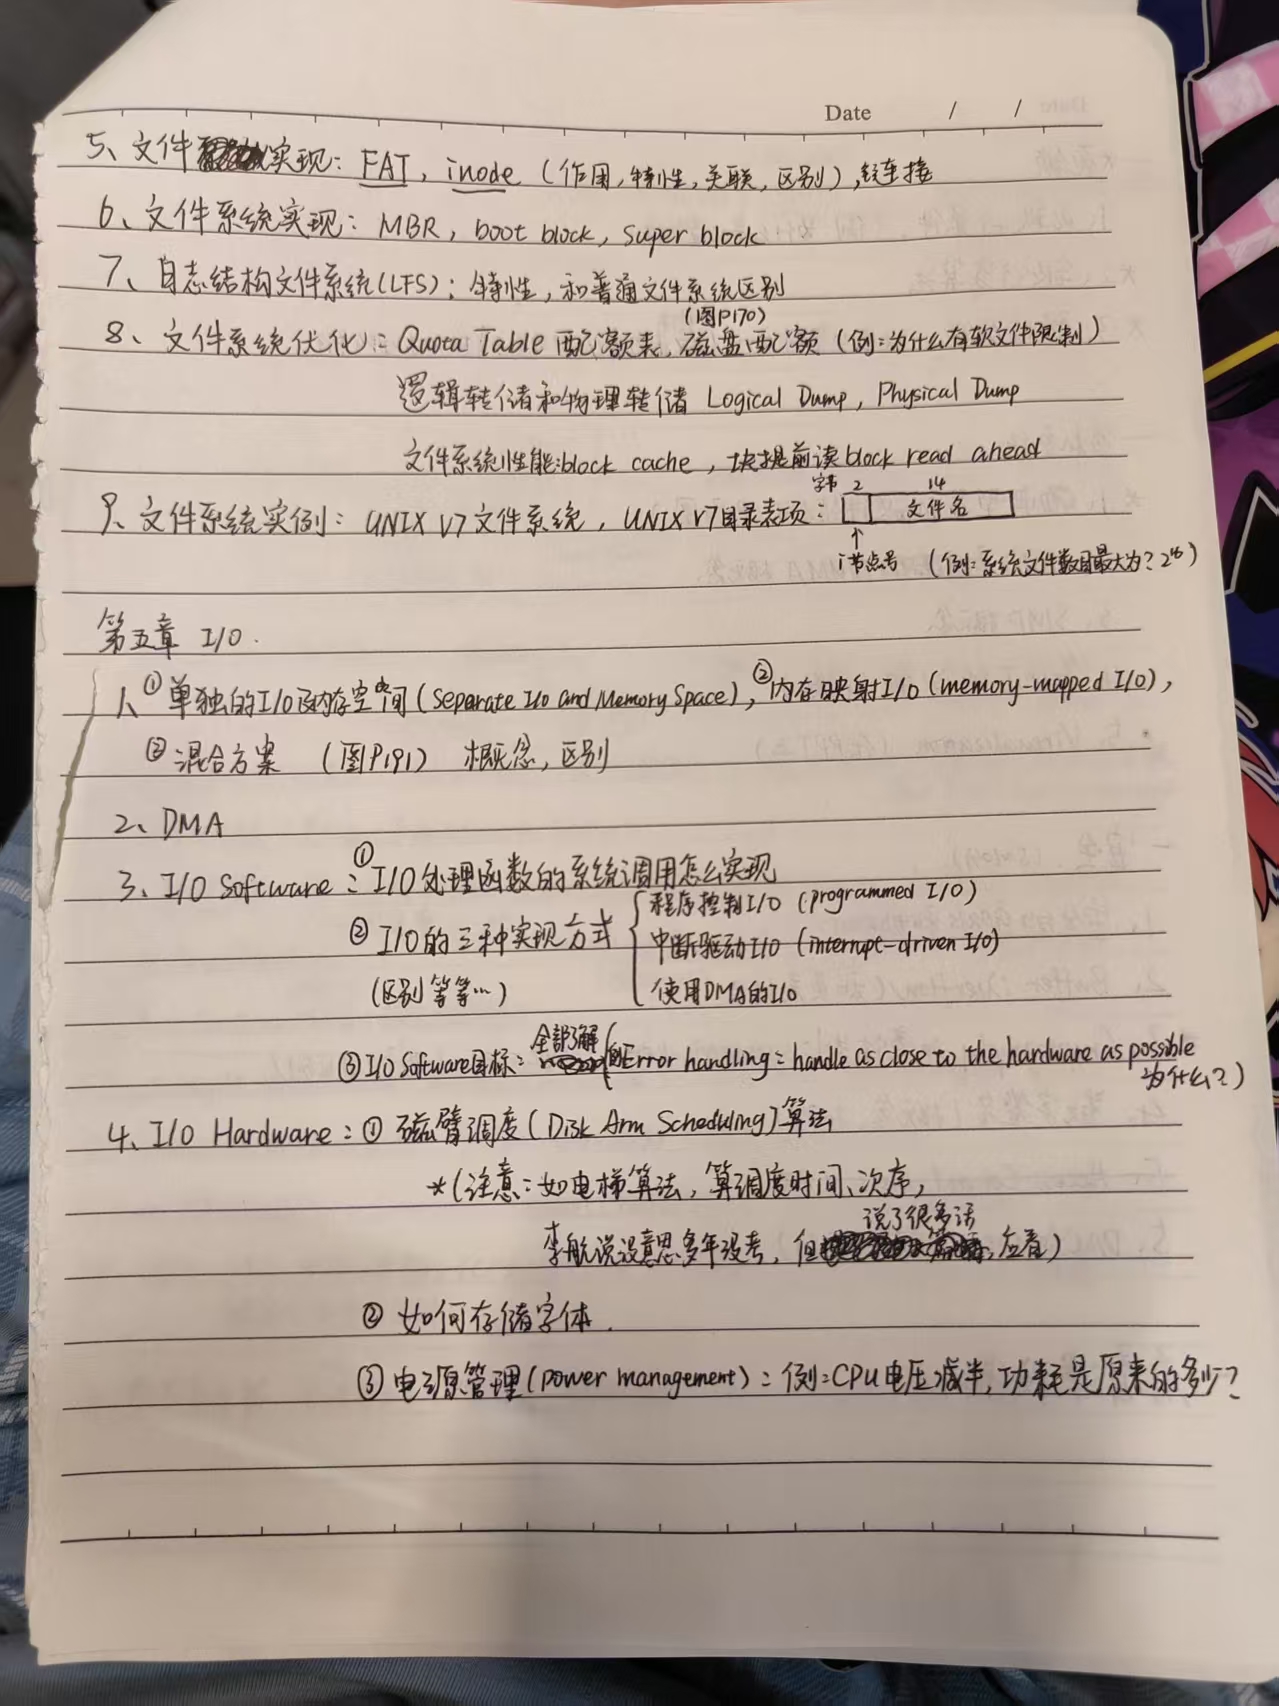 Date / /
5、文件实现：FAT，inode（作用，特性，关联，区别），链连接
6、文件系统实现：MBR，boot block，super block
7、日志结构文件系统(LFS)：特性，和普通文件系统区别
(图P170)
8、文件系统优化：Quota Table 配额表，磁盘配额（例：为什么有软文件限制）
逻辑转储和物理转储 Logical Dump，Physical Dump
文件系统性能：block cache，块提前读 block read ahead
字节 2 14
9、文件系统实例：UNIX V7 文件系统，UNIX V7目录表项： 文件名
↑
i节点号 （例：系统文件数目最大为？2¹⁶）
第五章 I/O.
1、①单独的I/O及内存空间(Separate I/O and Memory Space)，②内存映射I/O (memory-mapped I/O)，
③混合方案 （图P191） 概念，区别
2、DMA
3、I/O Software：①I/O处理函数的系统调用怎么实现
②I/O的三种实现方式 { 程序控制I/O (programmed I/O)
中断驱动I/O (interrupt-driven I/O)
(区别等等…) 使用DMA的I/O
全部了解
③I/O Software目标： (例Error handling：handle as close to the hardware as possible
为什么？)
4、I/O Hardware：①磁臂调度(Disk Arm Scheduling)算法
*(注意：如电梯算法，算调度时间、次序，
说了很多话
李航说没意思多年没考，但，应看)
②如何存储字体.
③电源管理(power management)：例：CPU电压减半，功耗是原来的多少？